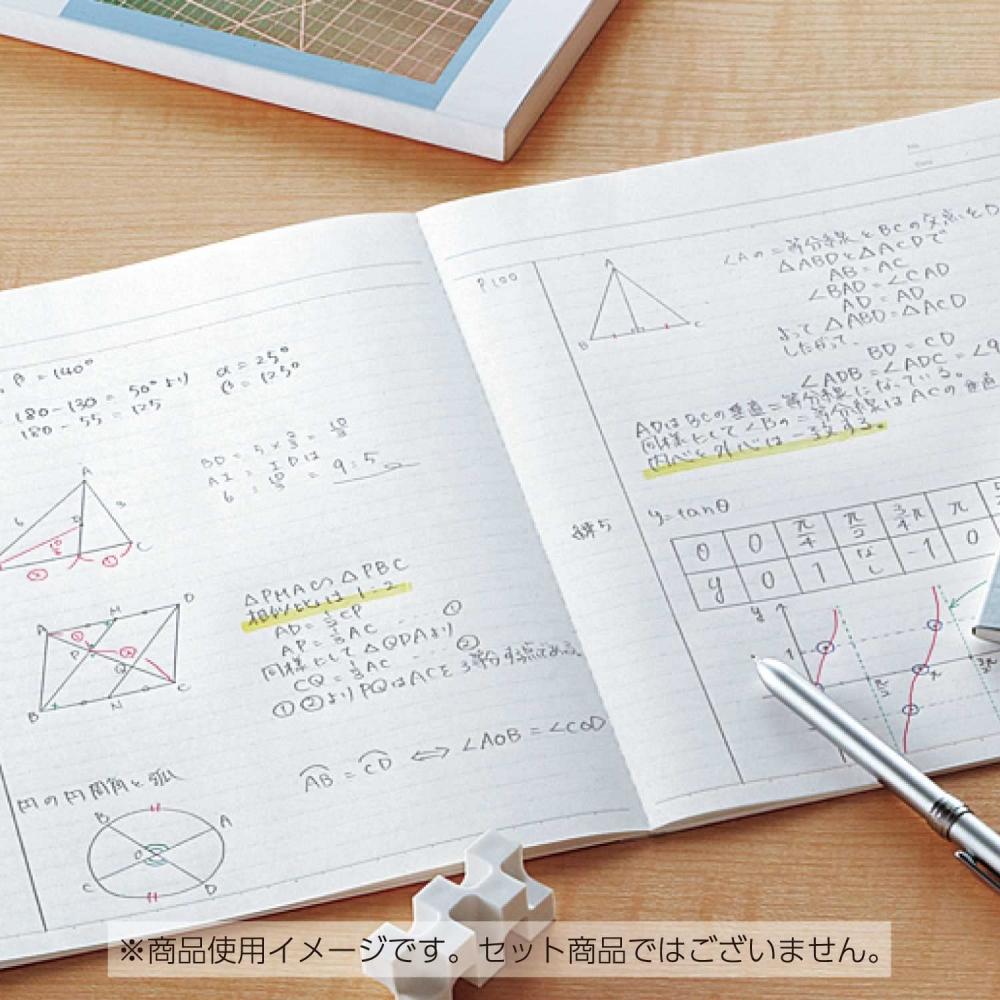 β = 140°
180-130 = 50°より α = 25°
180 - 55 = 125 β = 125°
BD = 5 × 2/3 = 10/3
AI : IDは
6 : 10/3 = 9:5
A
6
3
C
A
M
D
P
Q
B
N
C
△PMA∽△PBC
相似比は 1:2
AP = 1/3 AC … ①
同様にして△QDAより
CQ = 1/3 AC … ②
①②よりPQはACを3等分する点である。
円の円周角と弧
AB = CD ⇔ ∠AOB = ∠COD
B
A
O
C
D
No.
Date
P100
A
B
C
∠Aの二等分線とBCの交点をD
△ABDと△ACDで
AB = AC
∠BAD = ∠CAD
AD = AD
よって △ABD = △ACD
したがって、
BD = CD
∠ADB = ∠ADC = ∠9
ADはBCの垂直二等分線になっている。
同様にして∠Bの二等分線はACの垂直
内心と外心は一致する。
y = tanθ
θ 0 π/4 π/2 3/4π π
y 0 1 なし -1 0
y
1
π/2
π
※商品使用イメージです。セット商品ではございません。